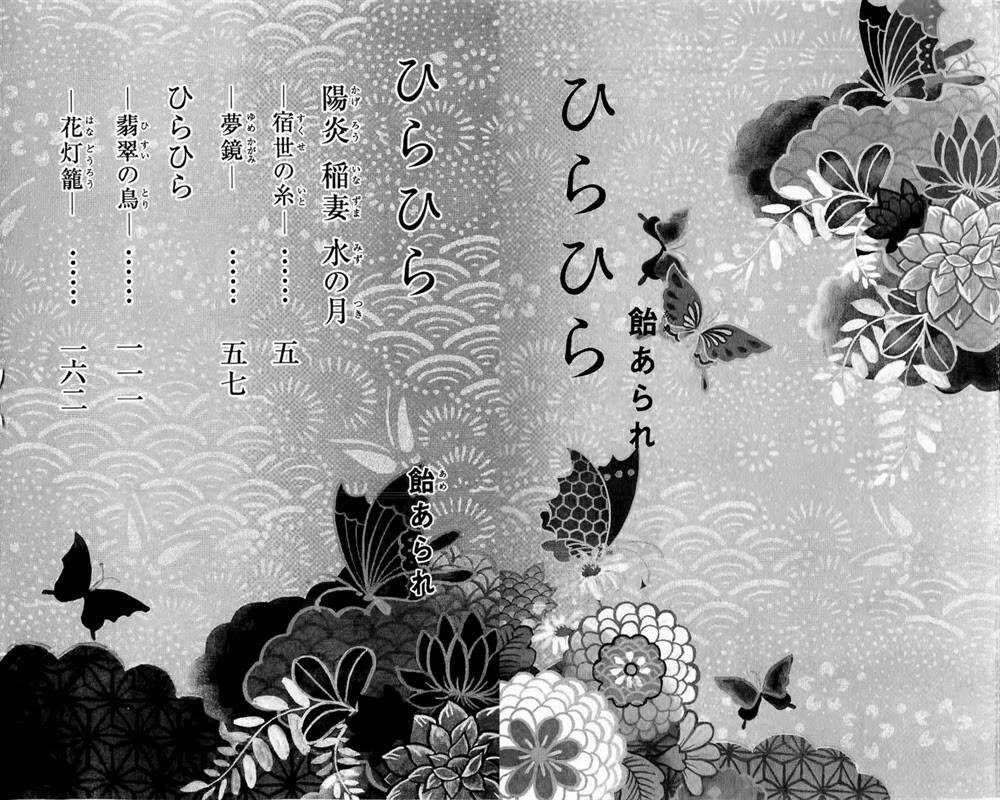 ひらひら
飴あられ
ひらひら
陽炎 稲妻 水の月
―宿世の糸― …… 五
―夢鏡― …… 五七
ひらひら
―翡翠の鳥― …… 一一一
―花灯籠― …… 一六二
飴あられ